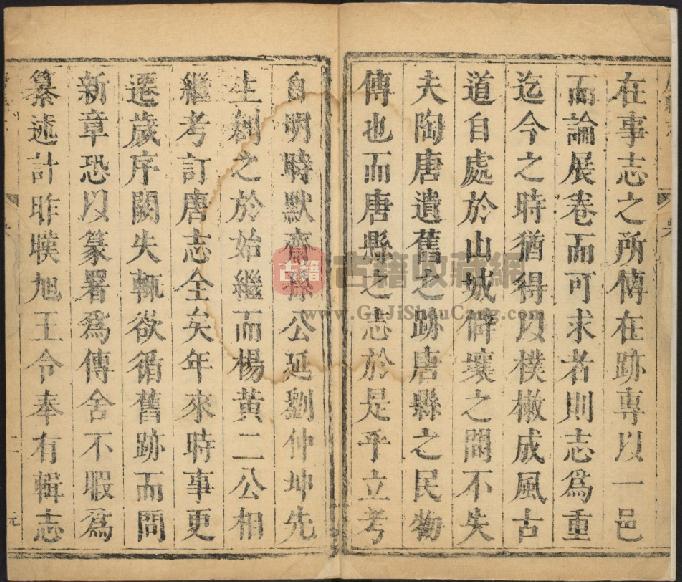 在事志之所傳在跡專以一邑
而論展卷而可求者則志為重
迄今之時猶得以樸樕成風古
道自處於山城僻壤之間不失
夫陶唐遺舊之跡唐縣之民物
傳也而唐縣之志於是乎立考
自明時默齋 公延劉仲坤先
生創之於始繼而楊黃二公相
繼考訂唐志全矣年來時事更
遷歲序闕失輒欲循舊跡而問
新章恐以篆署為傳舍不暇為
纂述計昨暵旭王令奉有輯志
古籍
古籍收藏網
www.GuJiShouCang.com
元